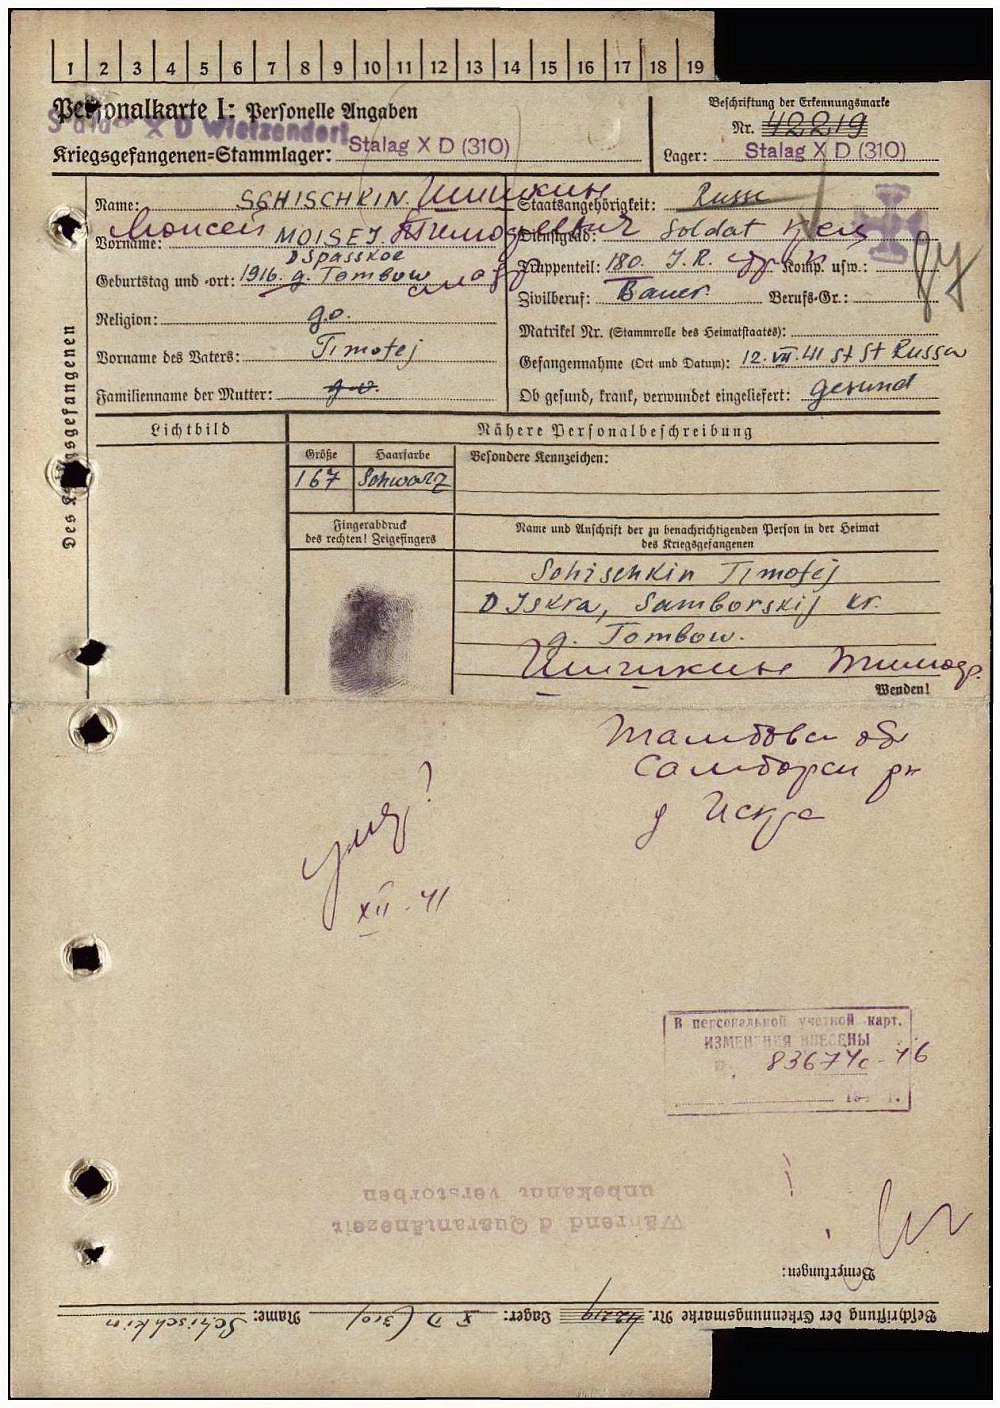 1 2 3 4 5 6 7 8 9 10 11 12 13 14 15 16 17 18 19
Personalkarte I: Personelle Angaben
Beschriftung der Erkennungsmarke
Stalag X D Wietzendorf
Nr. 42219
Kriegsgefangenen-Stammlager: Stalag X D (310)
Lager: Stalag X D (310)
Des Kriegsgefangenen
Name: SCHISCHKIN. Шишкин
Staatsangehörigkeit: Russe
Моисей Тимофеевич
Vorname: MOISEJ.
Dienstgrad: Soldat
D Spasskoe
Geburtstag und -ort: 1916. g. Tombow
Truppenteil: 180. J.R. Komp. usw.:
Zivilberuf: Bauer. Berufs-Gr.:
Religion: g.o.
Matrikel Nr. (Stammrolle des Heimatstaates):
Vorname des Vaters: Timofej
Gefangennahme (Ort und Datum): 12. VII. 41 St St Russa
Familienname der Mutter: g.o.
Ob gesund, krank, verwundet eingeliefert: gesund
Lichtbild
Nähere Personalbeschreibung
Größe Haarfarbe Besondere Kennzeichen:
167 Schwarz
Fingerabdruck
des rechten! Zeigefingers
Name und Anschrift der zu benachrichtigenden Person in der Heimat
des Kriegsgefangenen
Schischkin Timofej
D Iskra, Samborskij kr.
g. Tombow.
Шишкин Тимоф.
Wenden!
Тамбовск обл
Самборск рн
д Искра
?
XII-41
В персональной учетной карт.
ИЗМЕНЕНИЯ ВНЕСЕНЫ
83674с-46
194 г.
unbekannt verstorben
Während d Quarantänezeit
Bemerkungen:
Beschriftung der Erkennungsmarke Nr. 42219 Lager: X D (310) Name: Schischkin